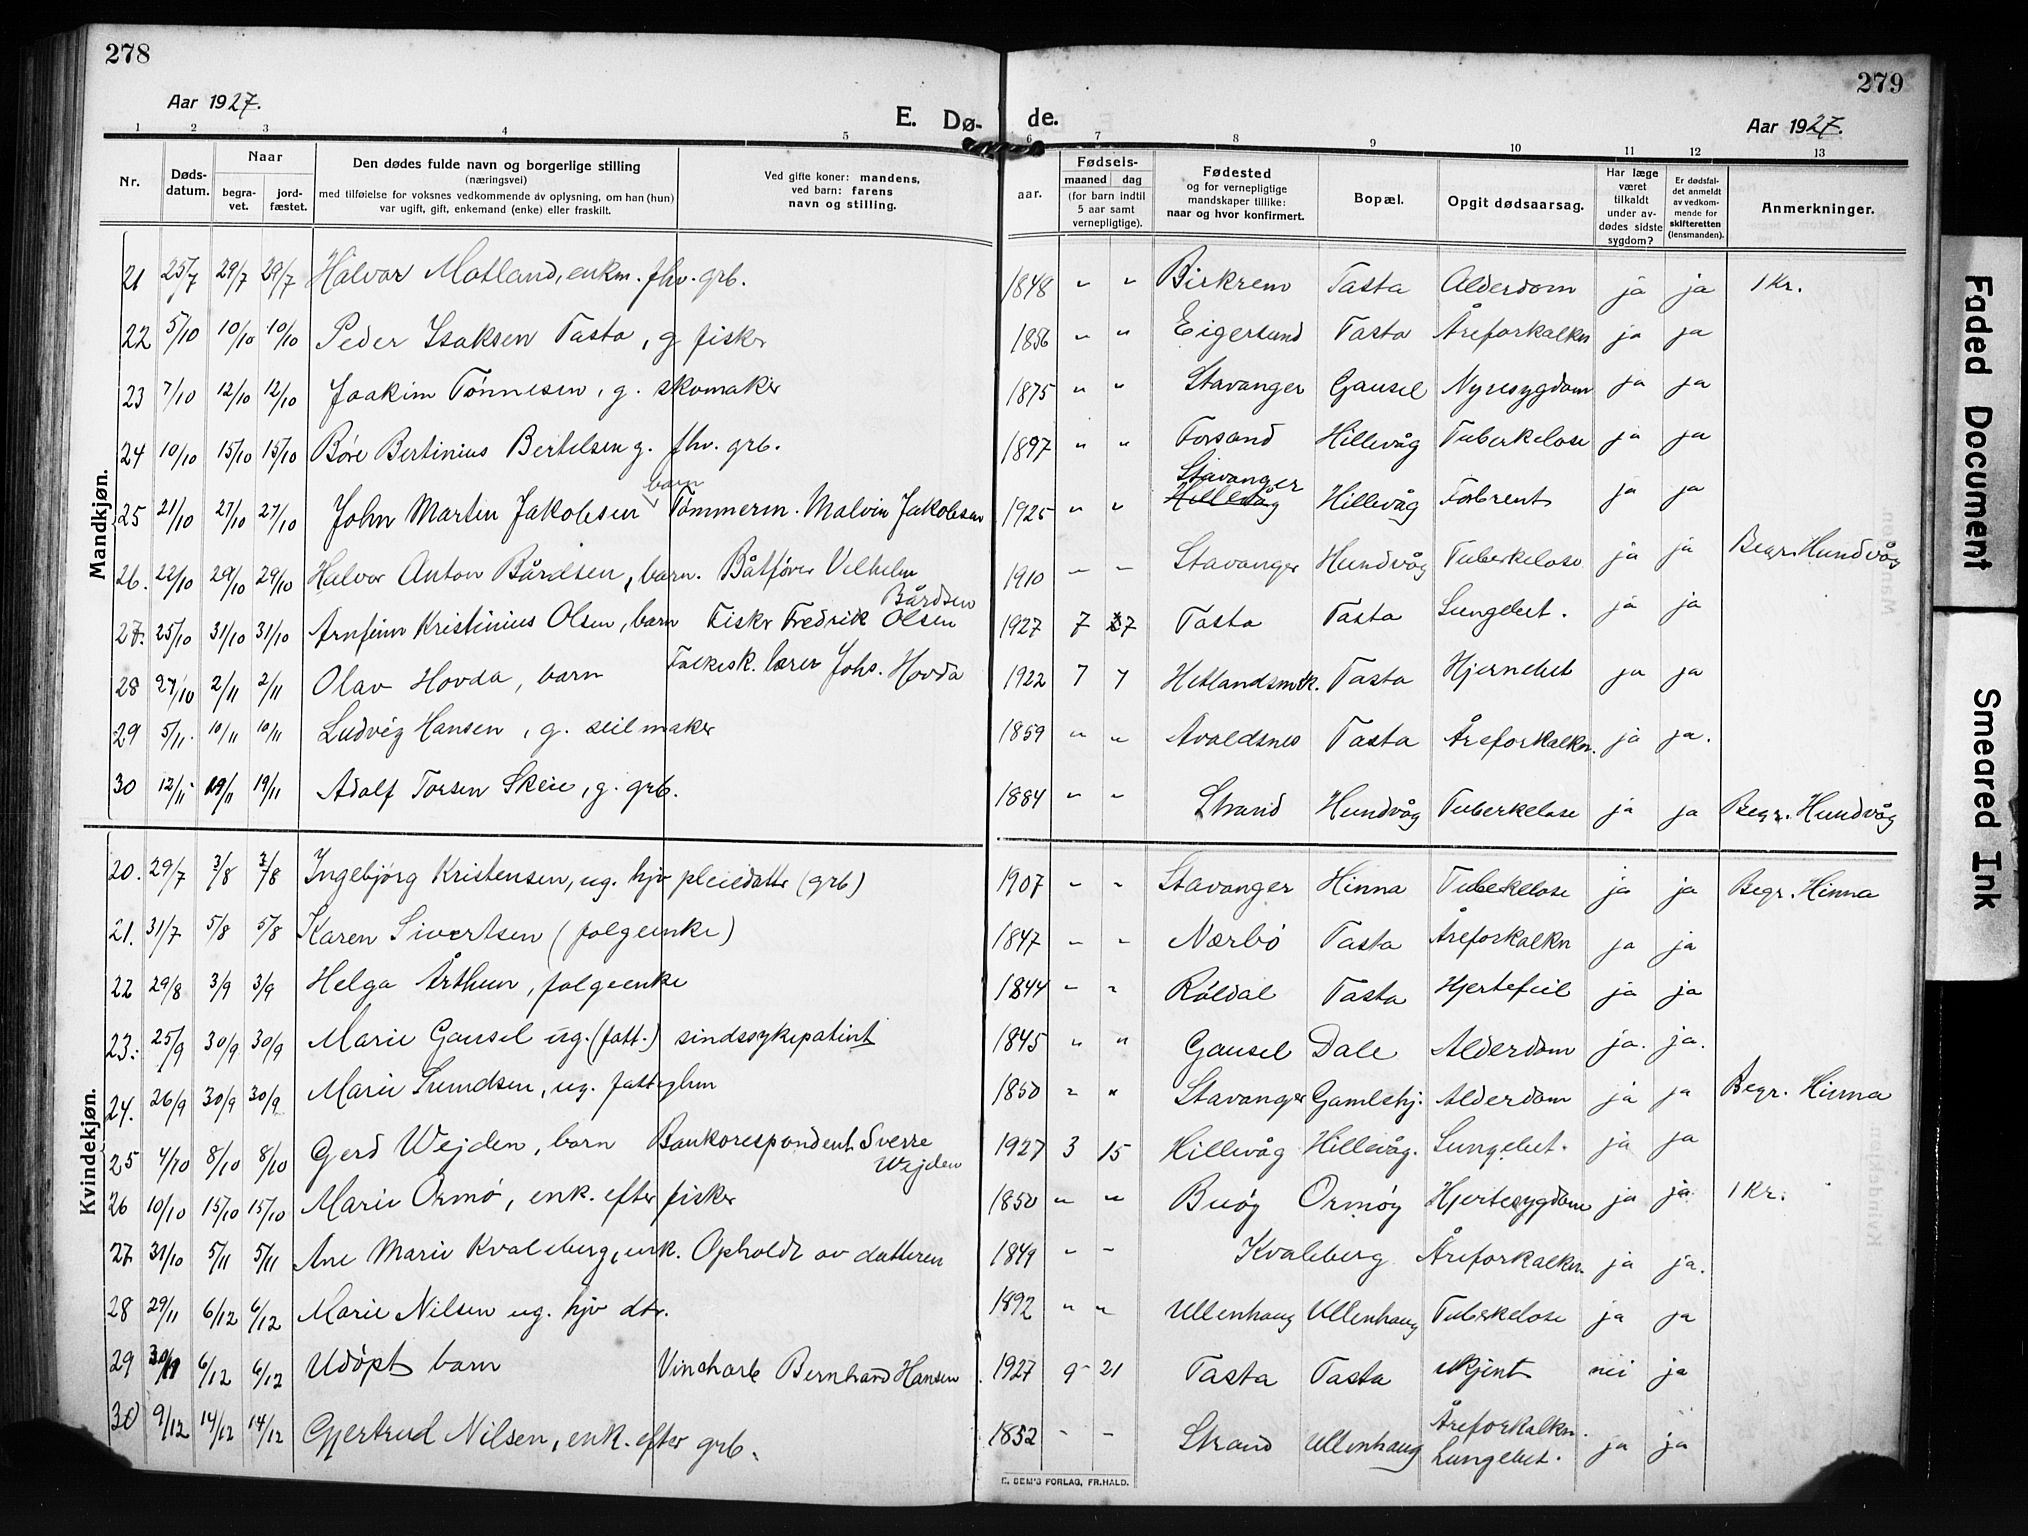 278
279
Aar 1927.
E. Dø-
de.
Aar 1927.
1 2 3 4 5 6 7 8 9 10 11 12 13
Nr.
Døds-
datum.
Naar
begra-
vet.
jord-
fæstet.
Den dødes fulde navn og borgerlige stilling
(næringsvei)
med tilføielse for voksnes vedkommende av oplysning, om han (hun)
var ugift, gift, enkemand (enke) eller fraskilt.
Ved gifte koner: mandens,
ved barn: farens
navn og stilling.
aar.
Fødsels-
maaned dag
(for barn indtil
5 aar samt
vernepligtige).
Fødested
og for vernepligtige
mandskaper tillike:
naar og hvor konfirmert.
Bopæl.
Opgit dødsaarsag.
Har læge
været
tilkaldt
under av-
dødes sidste
sygdom?
Er dødsfal-
det anmeldt
av vedkom-
mende for
skifteretten
(lensmanden).
Anmerkninger.
Mandkjøn.
21 25/7 29/7 29/7 Halvor Motland, enkm. fhv. grb. 1848 " " Birkrem Tasta Alderdom ja ja 1 Kr.
22 5/10 10/10 10/10 Peder Isaksen Tasta, g fisker 1856 " " Eigersund Tasta Åreforkalkn ja ja
23 7/10 12/10 12/10 Joakim Tønnesen, g. skomaker 1875 " " Stavanger Gausel Nyresygdom ja ja
24 10/10 15/10 15/10 Børe Bertinius Bertelsen g. fhv. grb. 1897 " " Forsand Hillevåg Tuberkelose ja ja
25 21/10 27/10 27/10 John Martin Jakobsen barn Tømmerm. Malvin Jakobsen 1925 " " Stavanger Hillevåg Hillevåg Forbrent ja ja
26. 22/10 29/10 29/10 Halvor Anton Bårdsen, barn. Båtfører Vilhelm Bårdsen 1910 " " Stavanger Hundvåg Tuberkelose ja ja Begr. Hundvåg
27. 25/10 31/10 31/10 Arnfinn Kristinius Olsen, barn Fisker Fredrik Olsen 1927 7 27 Tasta Tasta Lungebet. ja ja
28 27/10 2/11 2/11 Olav Hovda, barn Folkesk. lærer Johs. Hovda 1922 7 7 Hetlandsmrk. Tasta Hjernebet ja ja
29 5/11. 10/11 10/11 Ludvig Hansen, g. seilmaker 1859 " " Avaldsnes Tasta Åreforkalkn. ja ja.
30 12/11 19/11 19/11 Adolf Torsen Skeie, g. grb. 1884 " " Strand Hundvåg Tuberkelose ja ja Begr. Hundvåg
Kvindekjøn.
20. 29/7 3/8 3/8 Ingebjørg Kristensen, ug. hjv pleiedatter (grb) 1907 " " Stavanger Hinna Tuberkelose ja ja Begr. Hinna
21. 31/7 5/8 5/8 Karen Sivertsen (folgeenke) 1847 " " Nærbø Tasta Åreforkalkn ja ja
22 29/8 3/9 3/9 Helga Årthun, folgeenke 1844 " " Røldal Tasta Hjertefeil ja ja
23. 25/9 30/9 30/9 Marie Gausel ug. (fatt.) sindssykepatient 1845 " " Gausel Dale Alderdom ja. ja.
24. 26/9 30/9 30/9 Marie Sundsen, ug. fattiglem 1850 " " Stavanger Gamlehj. Alderdom ja ja Begr. Hinna
25 4/10 8/10 8/10 Gerd Wejden, barn Bankorespondent Sverre Wejden 1927 3 15 Hillevåg Hillevåg. Lungebet. ja ja
26 10/10 15/10 15/10 Marie Ormø, enk. efter fisker 1850 " " Buøy Ormøy Hjertesygdom ja ja 1 Kr.
27. 31/10 5/11 5/11 Ane Marie Kvaleberg, enk. Opholdt av datteren 1849 " " Kvaleberg Åreforkalkn. ja ja.
28 29/11 6/12 6/12 Marie Nilsen ug. hjv dtr. 1892 " " Ullenhaug Ullenhaug Tuberkelose ja ja
29 30/11 6/12 6/12 Udøpt barn Bernhard Hansen 1927 9 21 Tasta Tasta ukjent nei ja
30 9/12 14/12 14/12 Gjertrud Nilsen, enk. efter grb. 1852 " " Strand Ullenhaug Åreforkalkn. Lungebet. ja ja
E. SEM'S FORLAG, FR.HALD.
Faded Document
Smeared Ink